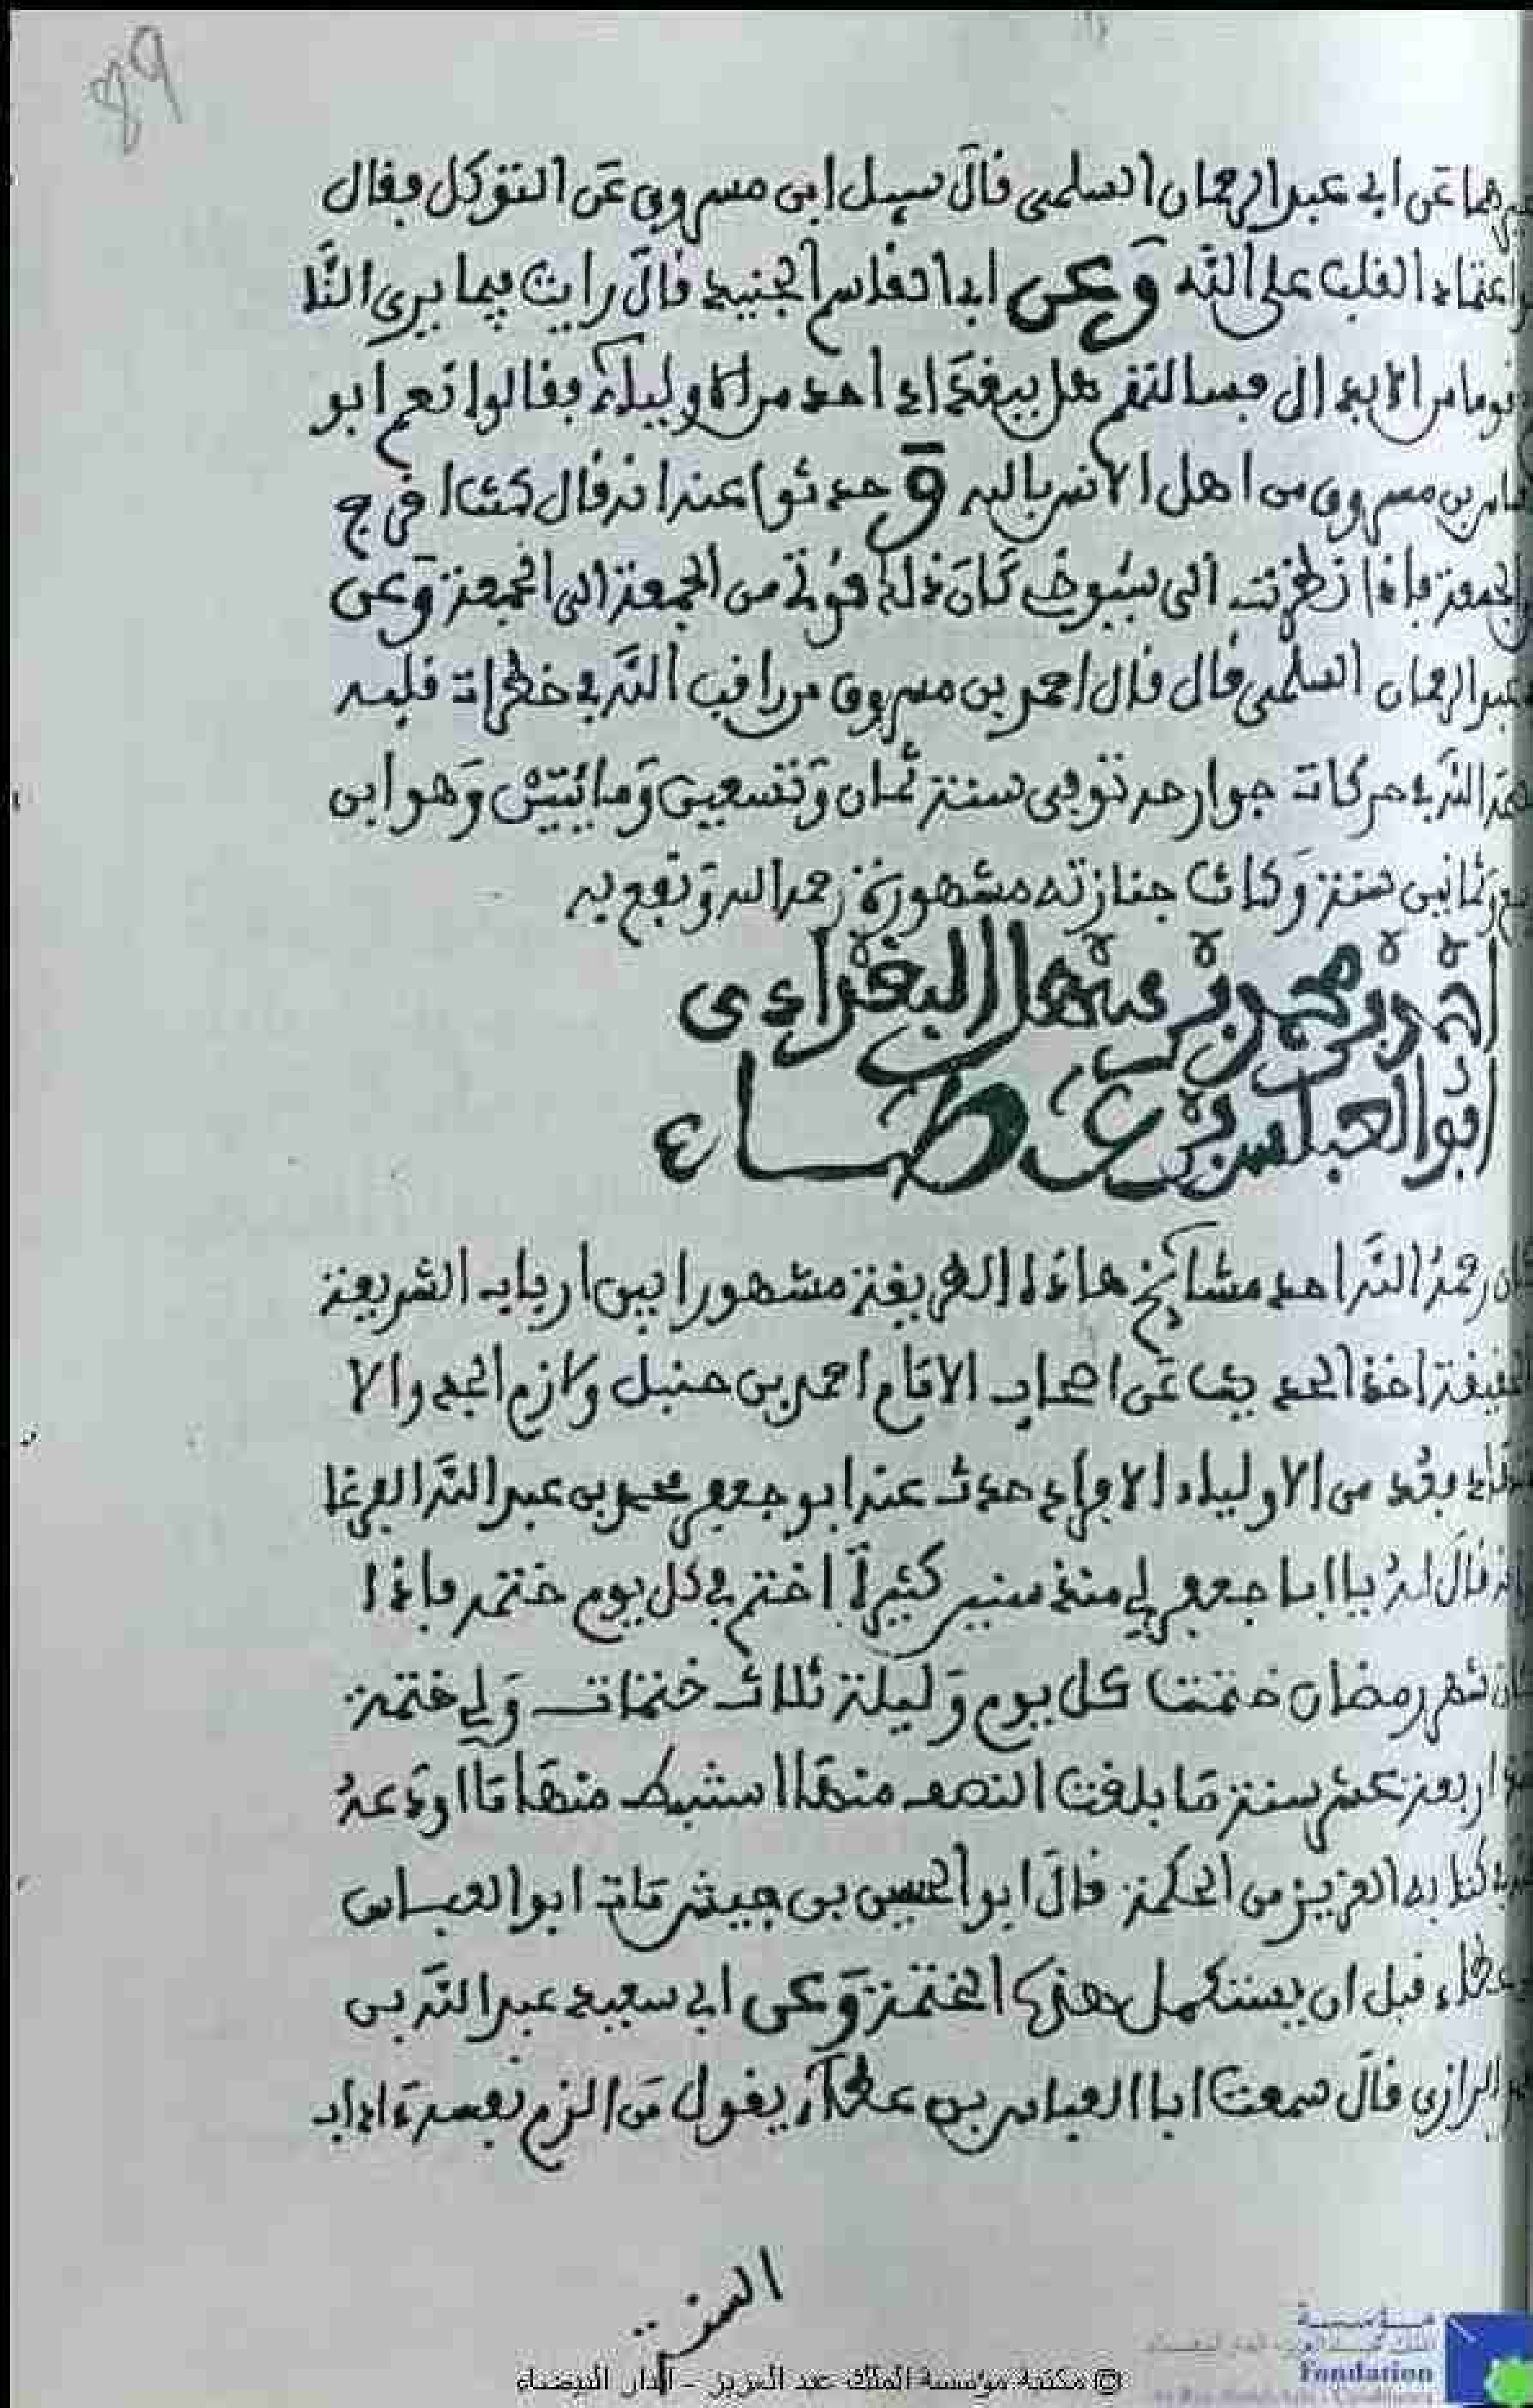 89
عن ابي عبد الرحمان السلمي قال سيل ابن مسروق عن التوكل فقال
اعتماد القلب على الله وعن ابا القاسم الجنيد قال رايت فيما يرى النا
قوما من الابدال فسالتهم هل ببغداد احد من الاولياء فقالوا نعم ابو
بن مسروق من اهل الانس بالله وحدثوا عنه انه قال كنت اخرج
الجمعة فاذا نظرت الى شيوخ كان ذلك قوتي من الجمعة الى الجمعة وعن
عبد الرحمان السلمي قال قال احمد بن مسروق من راقب الله في خطرات قلبه
الله في حركات جوارحه توفي سنة ثمان وتسعين ومائتين وهو ابن
ثمانين سنة وكانت جنازته مشهورة رحمه الله ونفع به
احمد بن محمد بن سهل البغدادي
ابو العباس بن عطاء
رحمه الله احد مشائخ هاذه الطريقة مشهورا بين ارباب الشريعة
اخذ الحديث عن اصحاب الامام احمد بن حنبل ولازم الجد والا
بعد من الاولياء الافراد حدث عنه ابو جعفر محمد بن عبد الله الفرغا
قال له يا ابا جعفر لي منذ سنين كثيرة اختم في كل يوم ختمة فاذا
كان شهر رمضان ختمت كل يوم وليلة ثلاث ختمات ولي ختمة
اربعة عشر سنة ما بلغت النصف منها استنبط منها ما اودعه
كتابه العزيز من الحكمة قال ابو الحسين بن حبيش مات ابو العباس
عطاء قبل ان يستكمل هذه الختمة وعن ابي سعيد عبد الله بن
الرازي قال سمعت ابا العباس بن عطاء يقول من الزم نفسه ءاداب
السنة
© مكتبة مؤسسة الملك عبد العزيز - الدار البيضاء
مؤسسة
Fondation